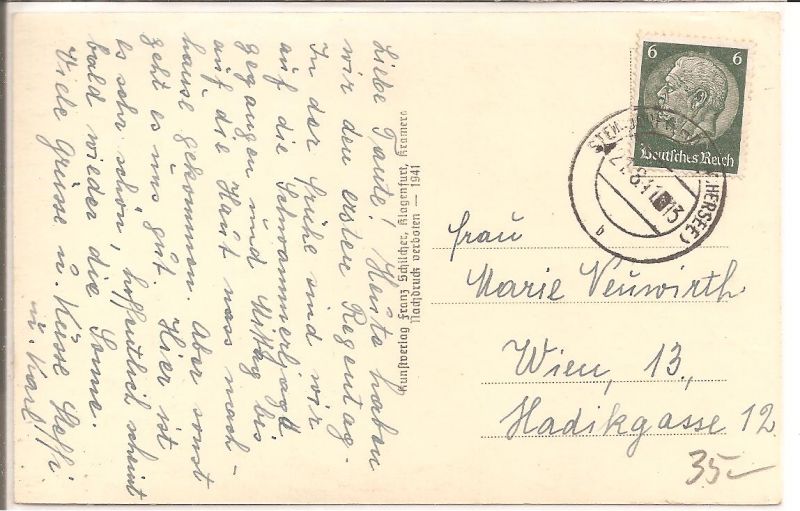 Liebe Tante! Heute haben
wir den ersten Regentag.
In der Frühe sind wir
auf die Schwammerljagd
gegangen und Mittag bis
auf die Haut nass nach-
hause gekommen. Aber sonst
geht es uns gut. Hier ist
es sehr schön, hoffentlich scheint
bald wieder die Sonne.
Viele Grüsse u. Küsse Steffi
u. Karl
Kunstverlag Franz Schilcher, Klagenfurt, Kramerg
Nachdruck verboten — 1941
6 6
Deutsches Reich
HERSEE)
b
Frau
Marie Neuwirth
Wien, 13.,
Hadikgasse 12
35—